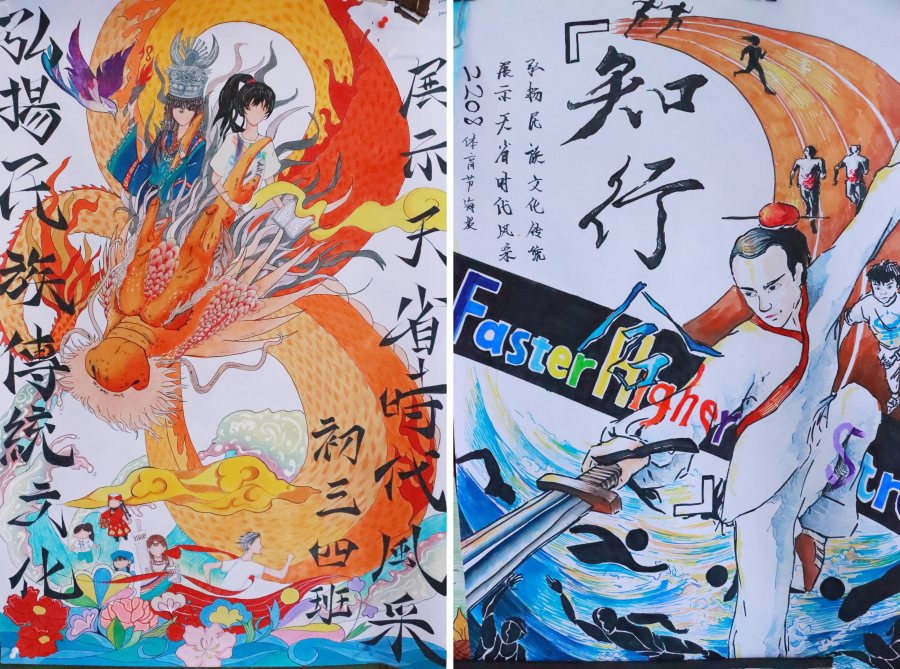 弘揚民族傳統文化
展示天省時代風采
初三四班
『知行合
』
弘扬民族文化传统
展示天省时代风采
2208体育节海报
Faster Higher Stro